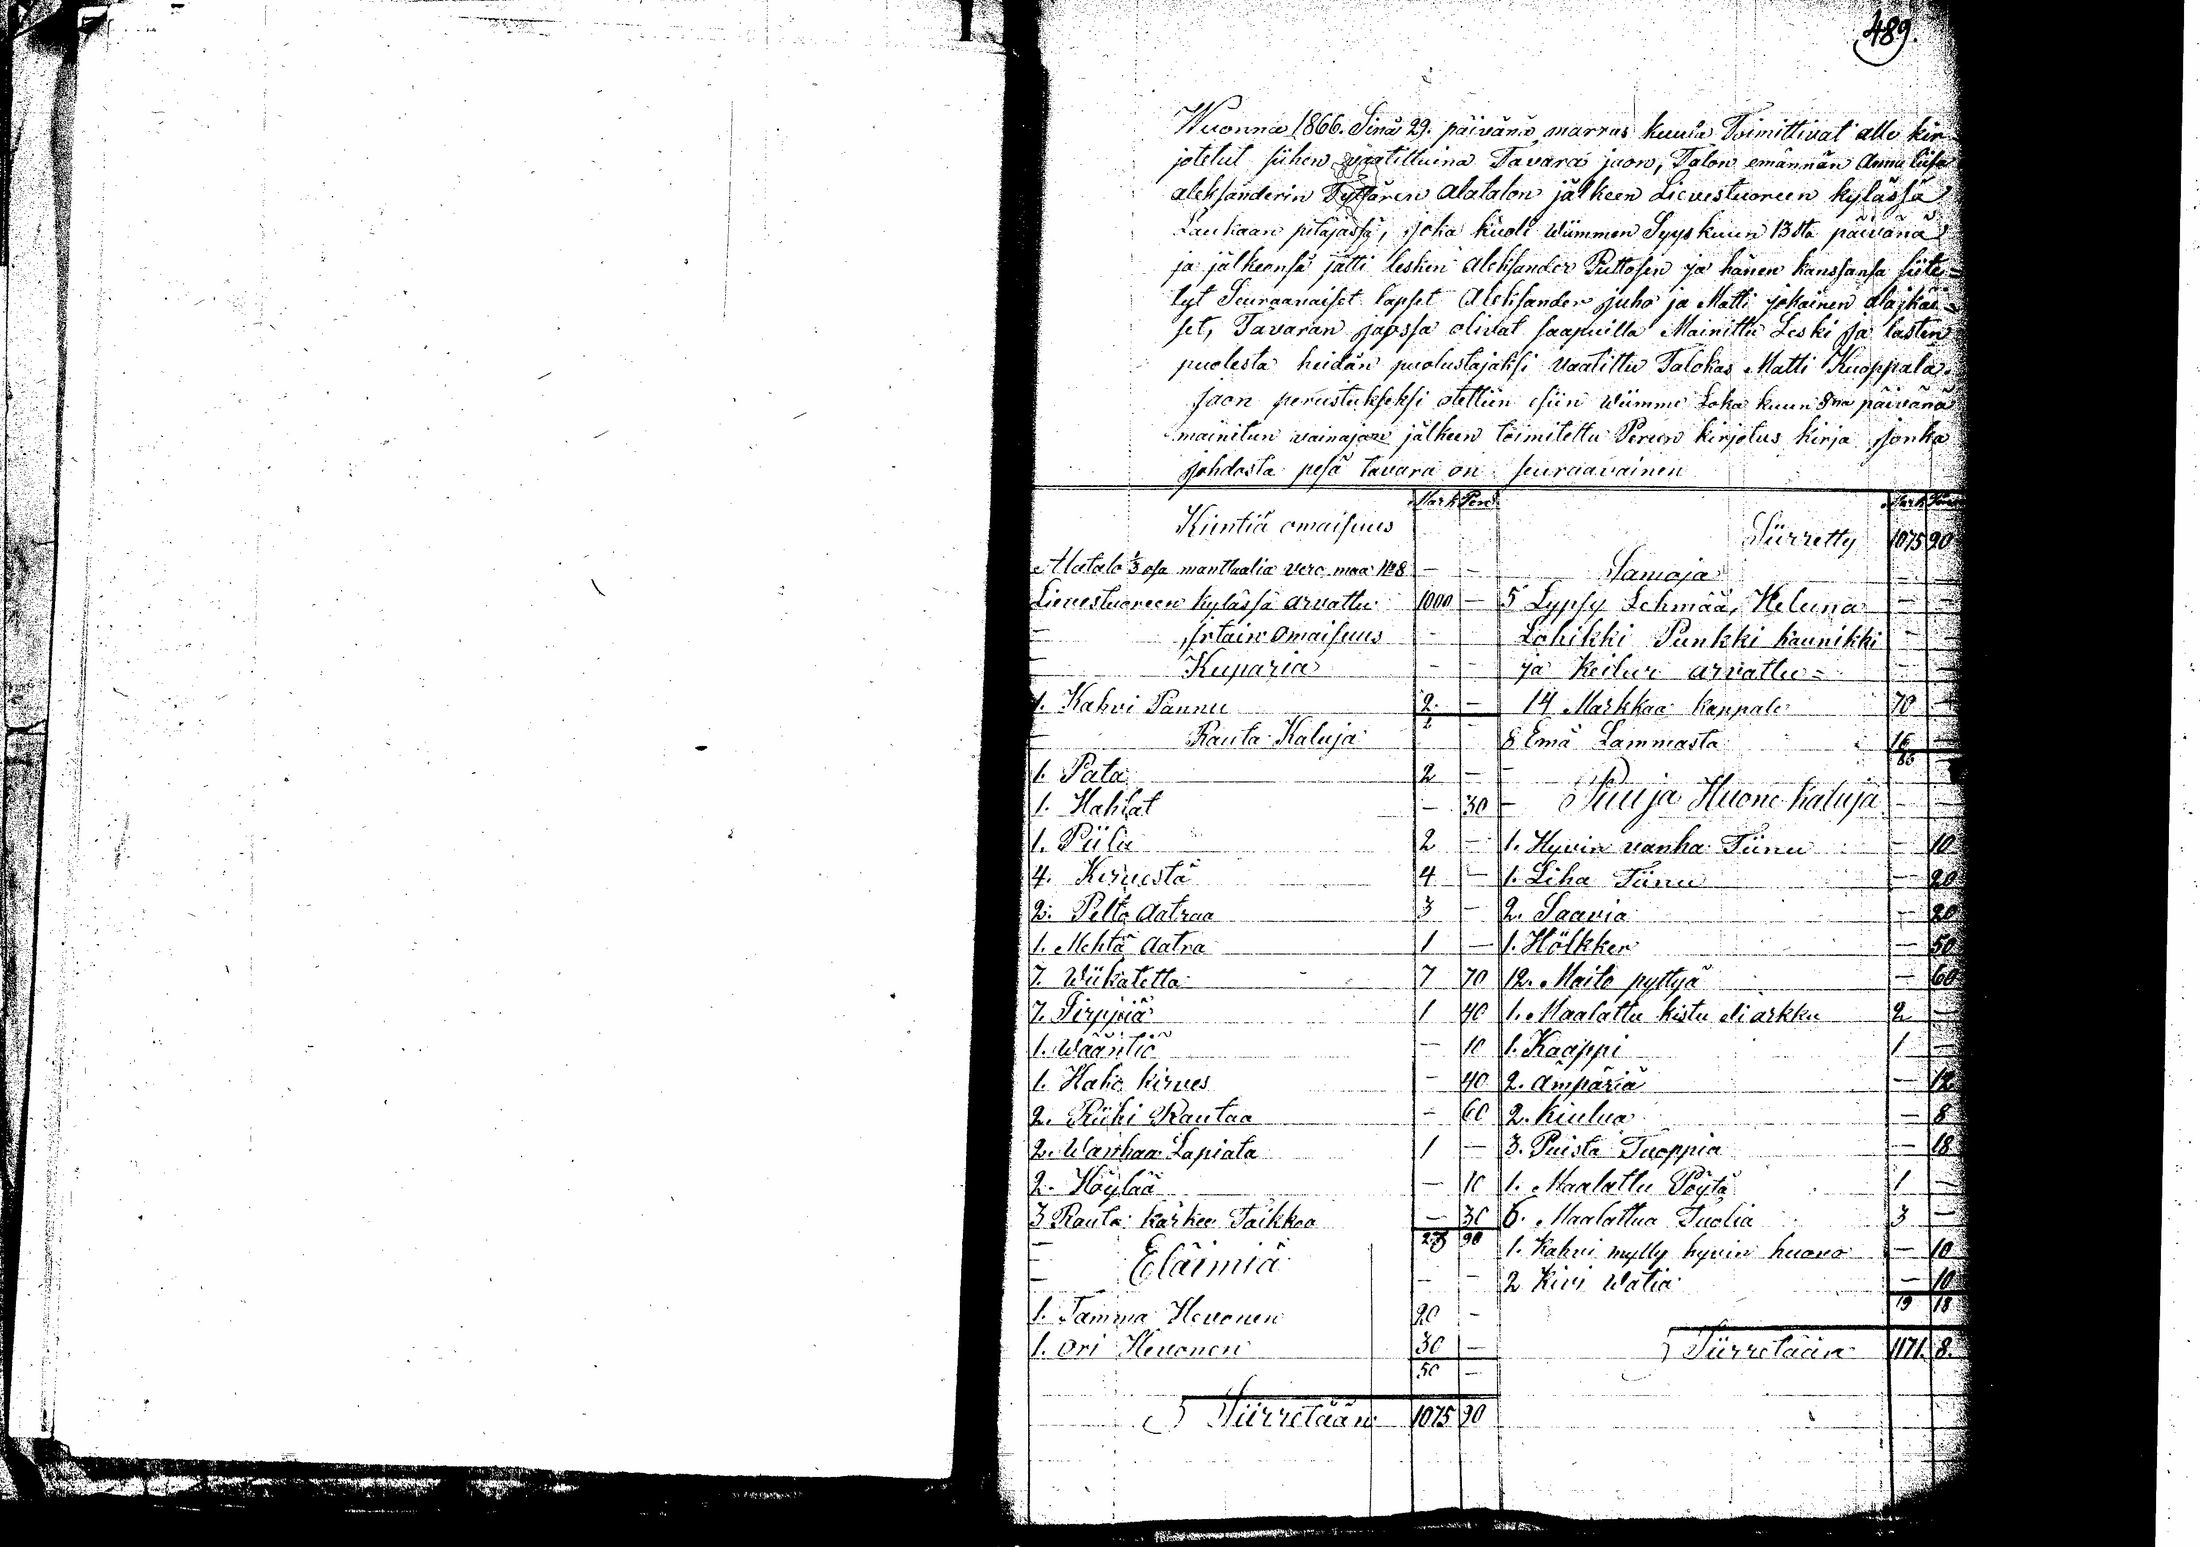 489.
Wuonna 1866. Sinä 29. päivänä marras kuusa Toimittivat alle kir
jotetut siihen vaatittuina Tavara jaon, Talon emännän Anna Liisa
Aleksanderin Tyttären Alatalon jälkeen Lievestuoreen kylässä
Laukaan pitäjässä, joka kuoli wiimmen Syyskuun 13sta päivänä
ja jälkeensä jätti lesken Aleksander Puttosen ja hänen kanssansa siite-
tyt Seuraavaiset lapset Aleksander Juho ja Matti jokainen alaikäi-
set, Tavaran jaossa olivat saapuilla Mainittu Leski ja lasten
puolesta heidän puolustajaksi vaatittu Talokas Matti Kuoppala.
Jaon perustukseksi otettiin esiin wiimme Loka kuun 8na päivänä
mainitun vainajan jälkeen toimitettu Perun kirjotus kirja jonka
johdosta pesä tavara on seuraavainen
Mark Pen
Kiintiä omaisuus
Alatalo 1/3 osa manttaalia vero maa No 8 — —
Lievestuoreen kylässä arvattu 1000 —
— Irtain omaisuus — —
— Kuparia — —
1. Kahvi Pannu 2. —
2
— Rauta Kaluja
1. Pata 2 —
1. Hahlat — 30
1. Piilu 2 —
4. Kirvestä 4 —
2. Pelto Aatraa 3 —
1. Mehtä Aatra 1 —
7. Wiikatetta 7 70
7. Sirppiä 1 40
1. Wääntiö — 10
1. Halko kirves — 40
2. Riihi Rautaa — 60
2. Wanhaa Lapiata 1 —
2. Höylää — 10
3 Rauta kärkee Taikkoa — 30
23 90
— Eläimiä
— — —
1. Tamma Hevonen 20 —
1. Ori Hevonen 30 —
50 —
Siirretään 1075 90
Mark Pen
Siirretty 1075 90
Samoja — —
5 Lypsy Lehmää, Heluna — —
Lohikki Punkki kaunikki — —
ja Keiluri arvattu — — —
14 Markkaa kappale 70 —
8 Emä Lammasta 16 —
86 —
— Puu ja Huone kaluja — —
1. Hyvin vanha Tiinu — 10
1. Liha Tiinu — 20
2. Saavia — 20
1. Hölkker — 50
12. Maito pyttyä — 60
1. Maalattu kistu eli arkku 2 —
1. Kaappi 1 —
2. Ämpäriä — 12
2. Kiulua — 8
3. Puista Tuoppia — 18
1. Maalattu Pöytä 1 —
6. Maalattua Tuolia 3 —
1. Kahvi mylly hyvin huono — 10
2 Kivi Watia — 10
9 18
Siirretään 1171. 8.